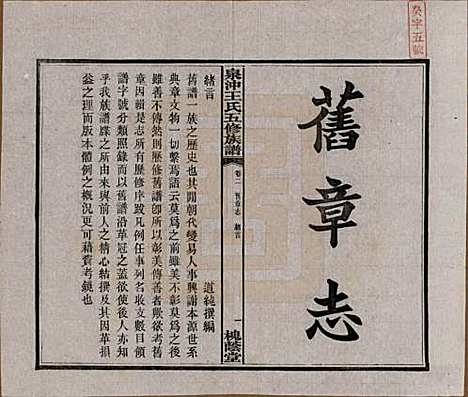 癸字五號
舊章志
泉沖王氏五修族譜
卷二 舊章志 緒言
一
槐蔭堂
緒言
道純撰編
舊譜一族之歷史也其間朝代變易人事興謝本源世系
典章文物一切繫焉語云莫為之前雖美不彰莫為之後
雖善不傳然則歷修舊譜卽所以彰美傳善者歟欲存舊
章因輯是志所有歷修序跋凡例任事列名收文數目領
譜字號分類照錄而以舊譜沿革冠之蓋欲使後人亦知
我族譜牒之所自來與前人之精心結撰而其因革損
益之理而版本體例之概況更可藉資考鏡也